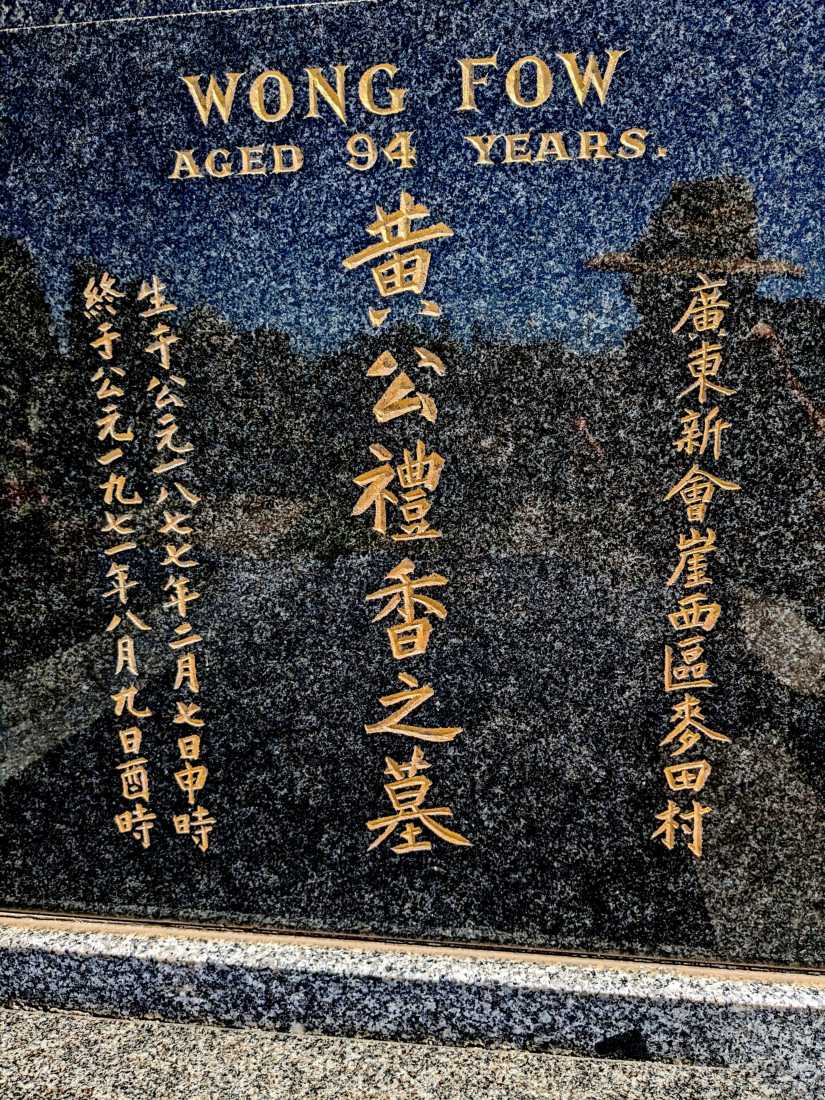 WONG FOW
AGED 94 YEARS.
廣東新會崖西區麥田村
黃公禮香之墓
生于公元一八七七年二月七日申時
終于公元一九七一年八月九日酉時